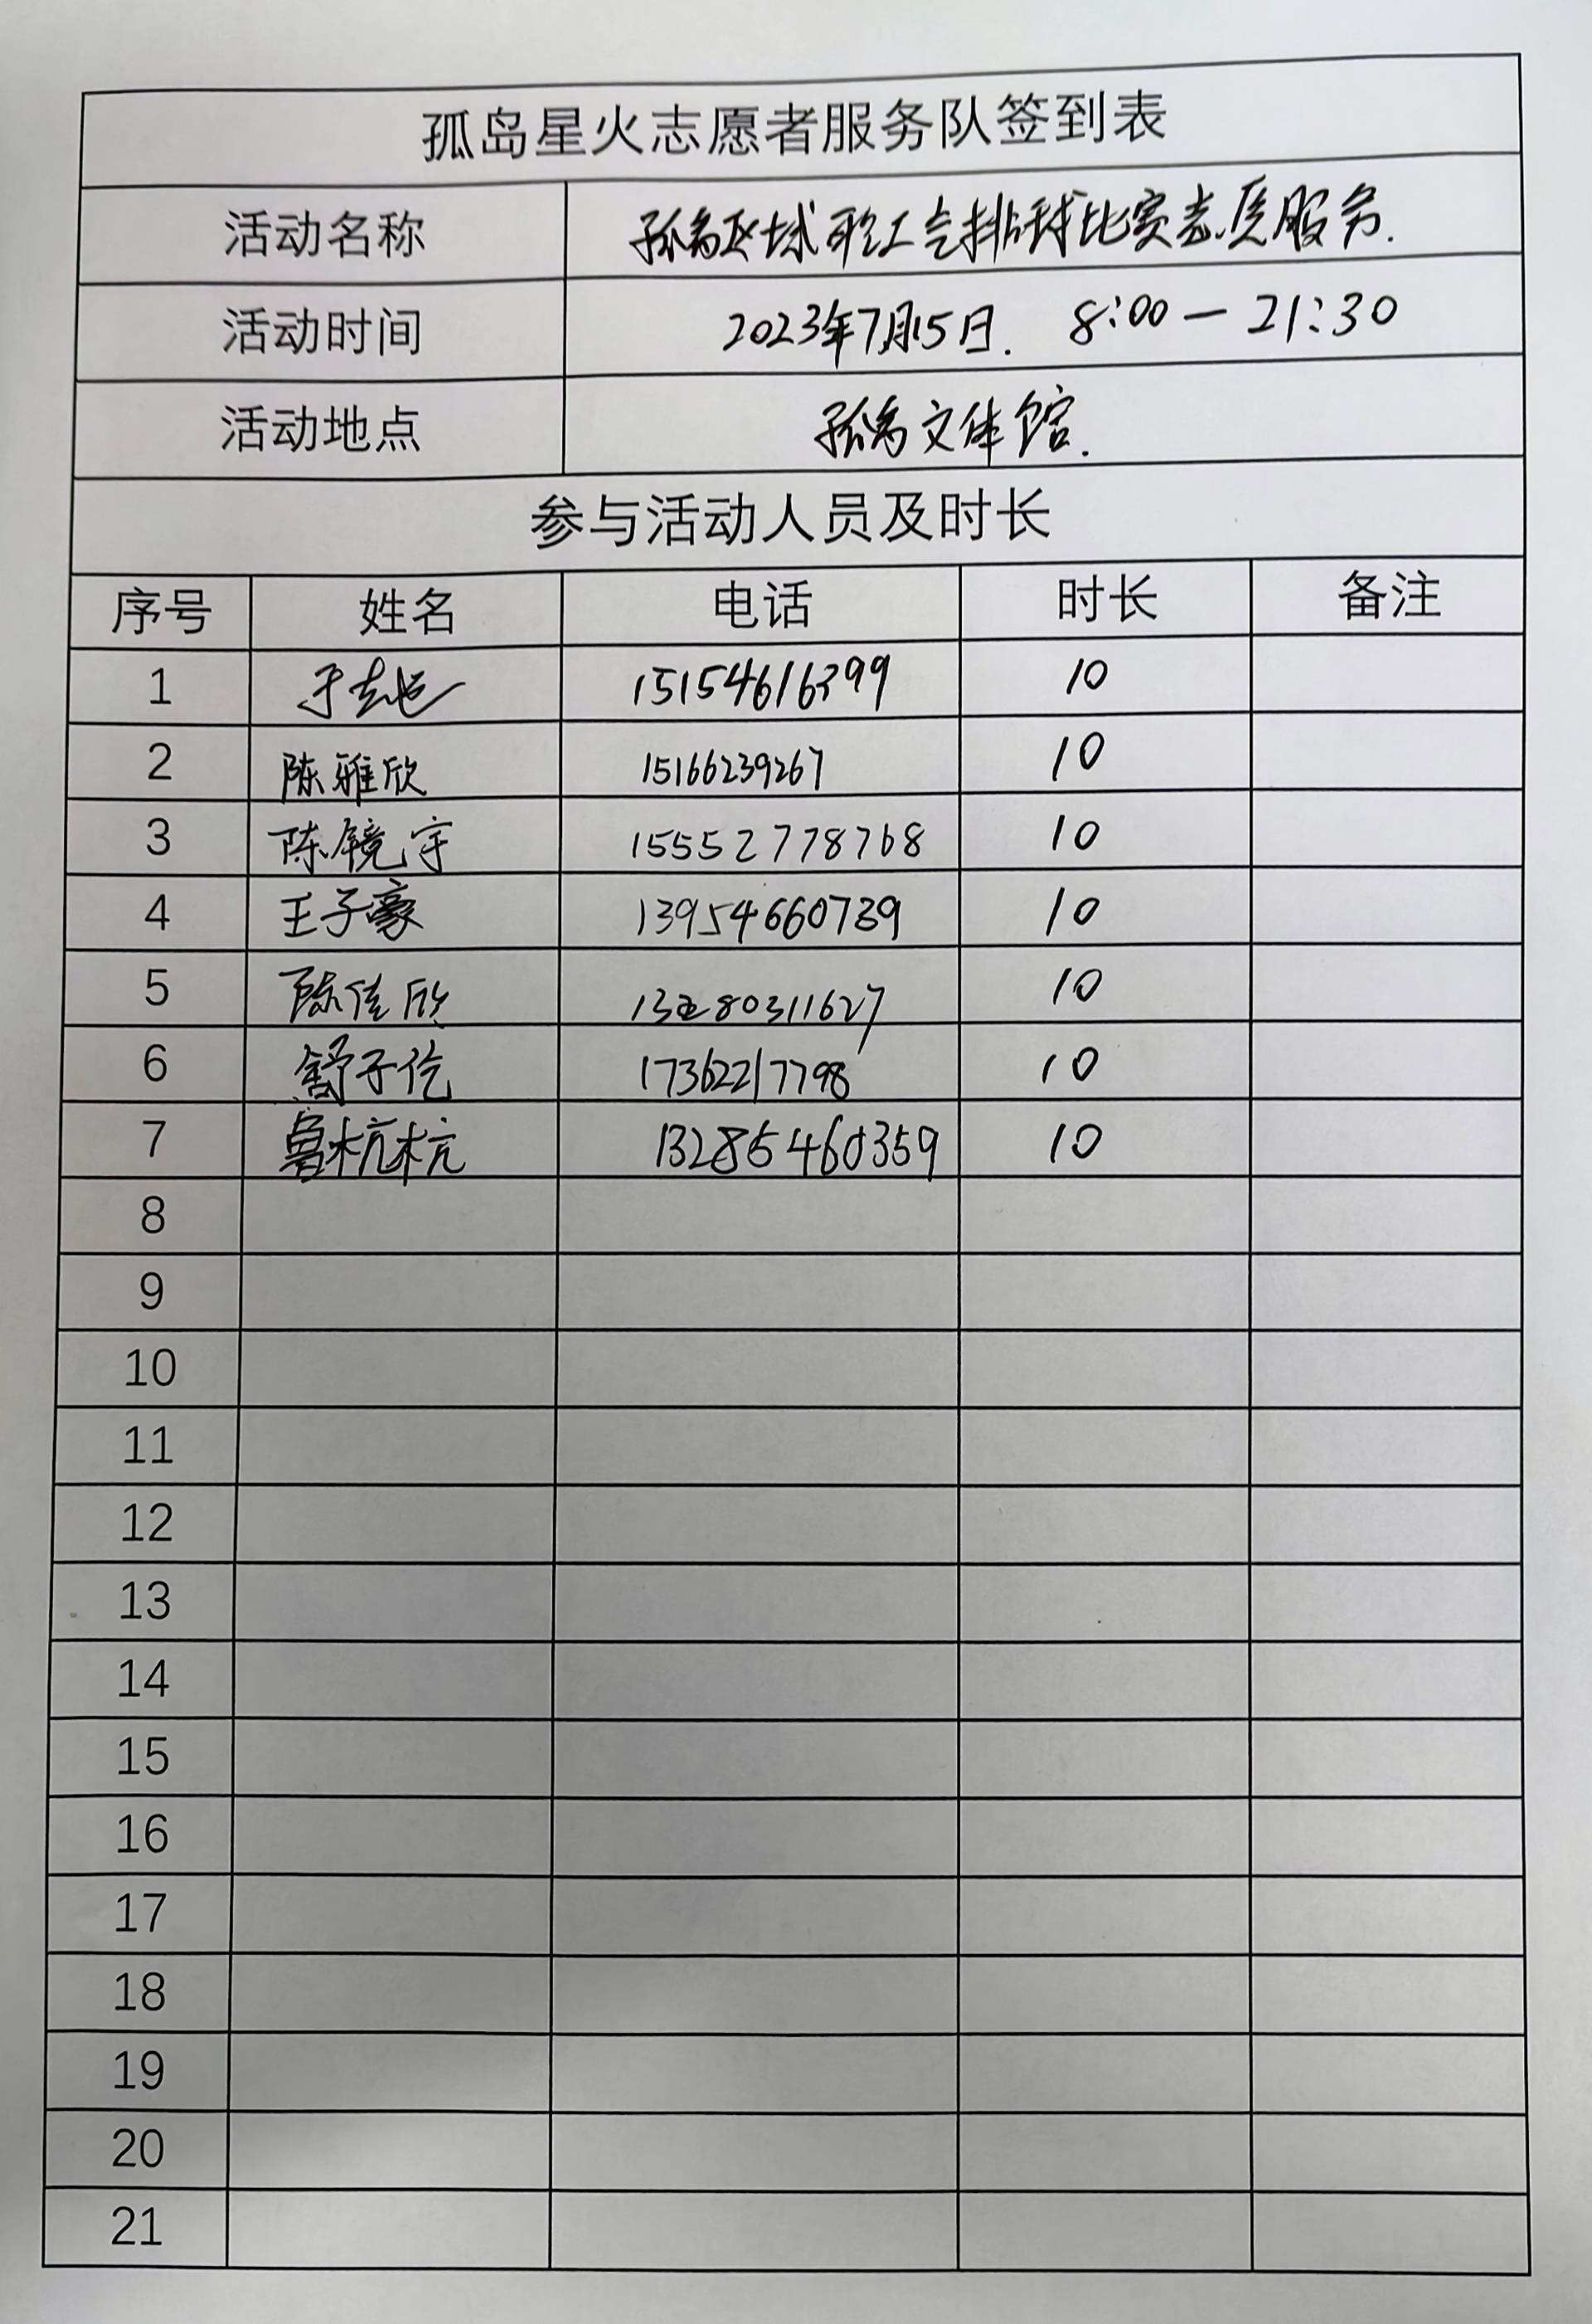 孤岛星火志愿者服务队签到表
活动名称 孤岛区域职工气排球比赛志愿服务.
活动时间 2023年7月15日. 8:00－21:30
活动地点 孤岛文体馆.
参与活动人员及时长
序号 姓名 电话 时长 备注
1 10
2 陈雅欣 15166239267 10
3 陈镜宇 15552778768 10
4 王子豪 13954660739 10
5 陈佳欣 13280311627 10
6 舒子仡 17362217798 10
7 鲁杭杭 13285460359 10
8
9
10
11
12
13
14
15
16
17
18
19
20
21